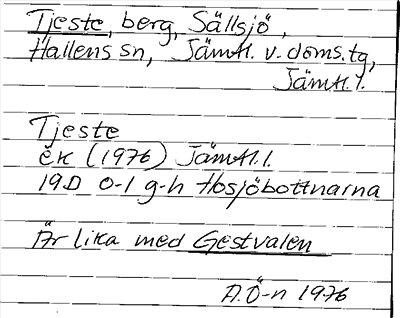 Tjeste, berg, Sällsjö,
Hallens sn, Jämtl. v. doms.tg,
Jämtl. l.
Tjeste
ek (1976) Jämtl. l.
19D 0-1 g-h Hosjöbottnarna
Är lika med Gestvalen
A.Ö-n 1976